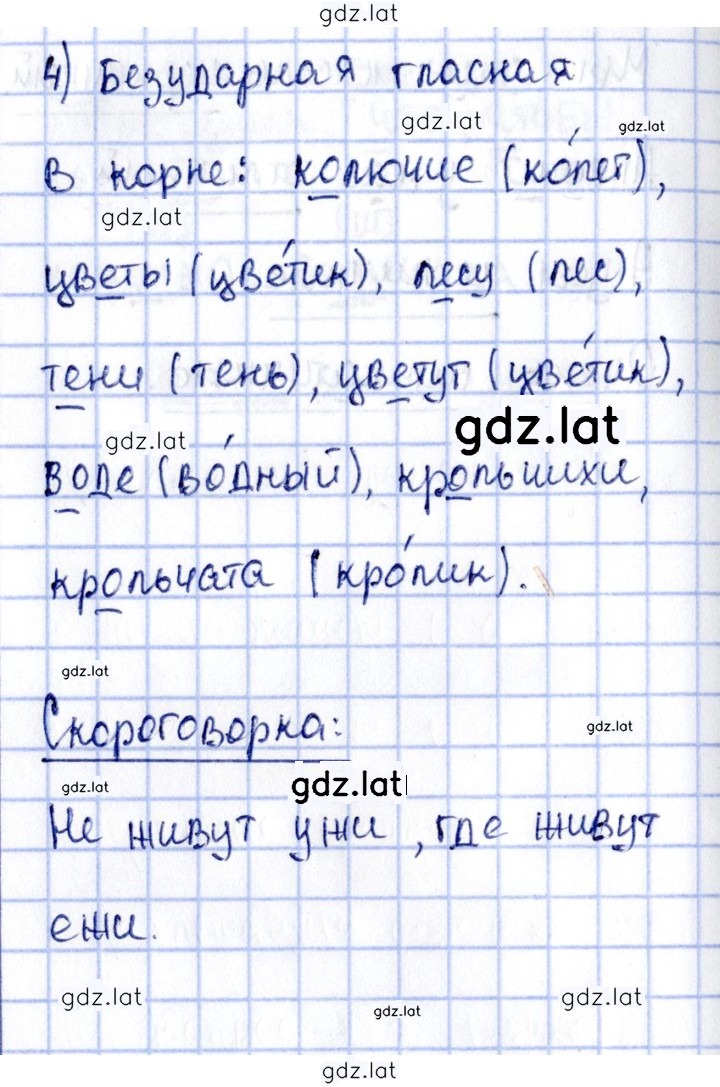 gdz.lat
4) Безударная гласная
gdz.lat gdz.lat
в корне: колючие (ко́лет),
gdz.lat
цветы (цве́тик), лесу (лес),
тени (тень), цветут (цве́тик),
gdz.lat gdz.lat
воде (во́дный), крольчихи,
крольчата (кро́лик).
gdz.lat
Скороговорка:
gdz.lat
gdz.lat gdz.lat
Не живут ужи, где живут
ежи.
gdz.lat gdz.lat gdz.lat
gdz.lat